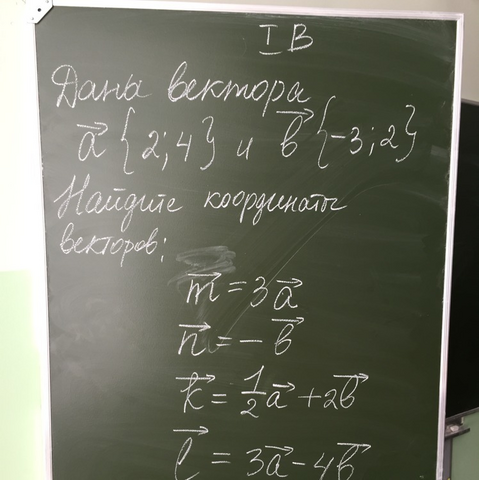 I В
Даны вектора
a⃗ {2;4} и b⃗ {-3;2}
Найдите координаты
векторов:
m⃗ = 3a⃗
n⃗ = -b⃗
k⃗ = 1/2 a⃗ + 2b⃗
l⃗ = 3a⃗ - 4b⃗